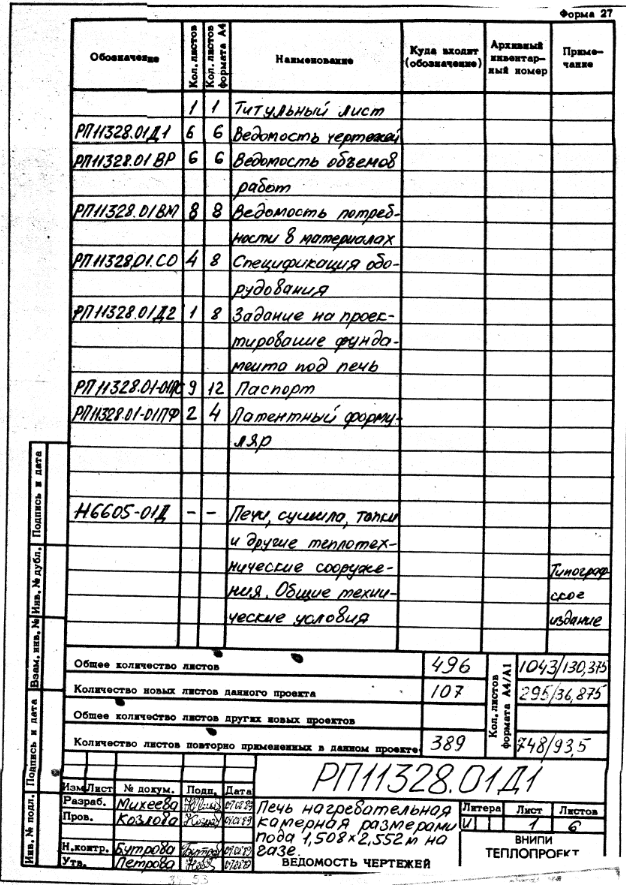 Форма 27
Обозначение Кол. листов Кол. листов формата А4 Наименование Куда входит (обозначение) Архивный инвентарный номер Примечание
1 1 Титульный лист
РП11328.01Д1 6 6 Ведомость чертежей
РП11328.01 ВР 6 6 Ведомость объемов
работ
РП11328.01ВМ 8 8 Ведомость потреб-
ности в материалах
РП11328.01.СО 4 8 Спецификация обо-
рудования
РП11328.01Д2 1 8 Задание на проек-
тирование фунда-
мента под печь
РП11328.01-01ПС 9 12 Паспорт
РП11328.01-01ПФ 2 4 Патентный форму-
ляр
Н6605-01Д - - Печи, сушила, топки
и другие теплотех-
нические сооруже-
ния. Общие техни-
ческие условия
Типограф-
ское
издание
Общее количество листов 496
Количество новых листов данного проекта 107
Общее количество листов других новых проектов
Количество листов повторно примененных в данном проекте 389
Кол. листов формата А4/А1
1043/130,375
295/36,875
748/93,5
РП11328.01Д1
Изм Лист № докум. Подп. Дата
Разраб. Михеева
Пров. Козлова
Н.контр. Бутрова
Утв. Петрова
Печь нагревательная
камерная размерами
пода 1,508×2,552м на
газе.
ВЕДОМОСТЬ ЧЕРТЕЖЕЙ
Литера Лист Листов
И 1 6
ВНИПИ
ТЕПЛОПРОЕКТ
Инв. № подл. Подпись и дата Взам. инв. № Инв. № дубл. Подпись и дата